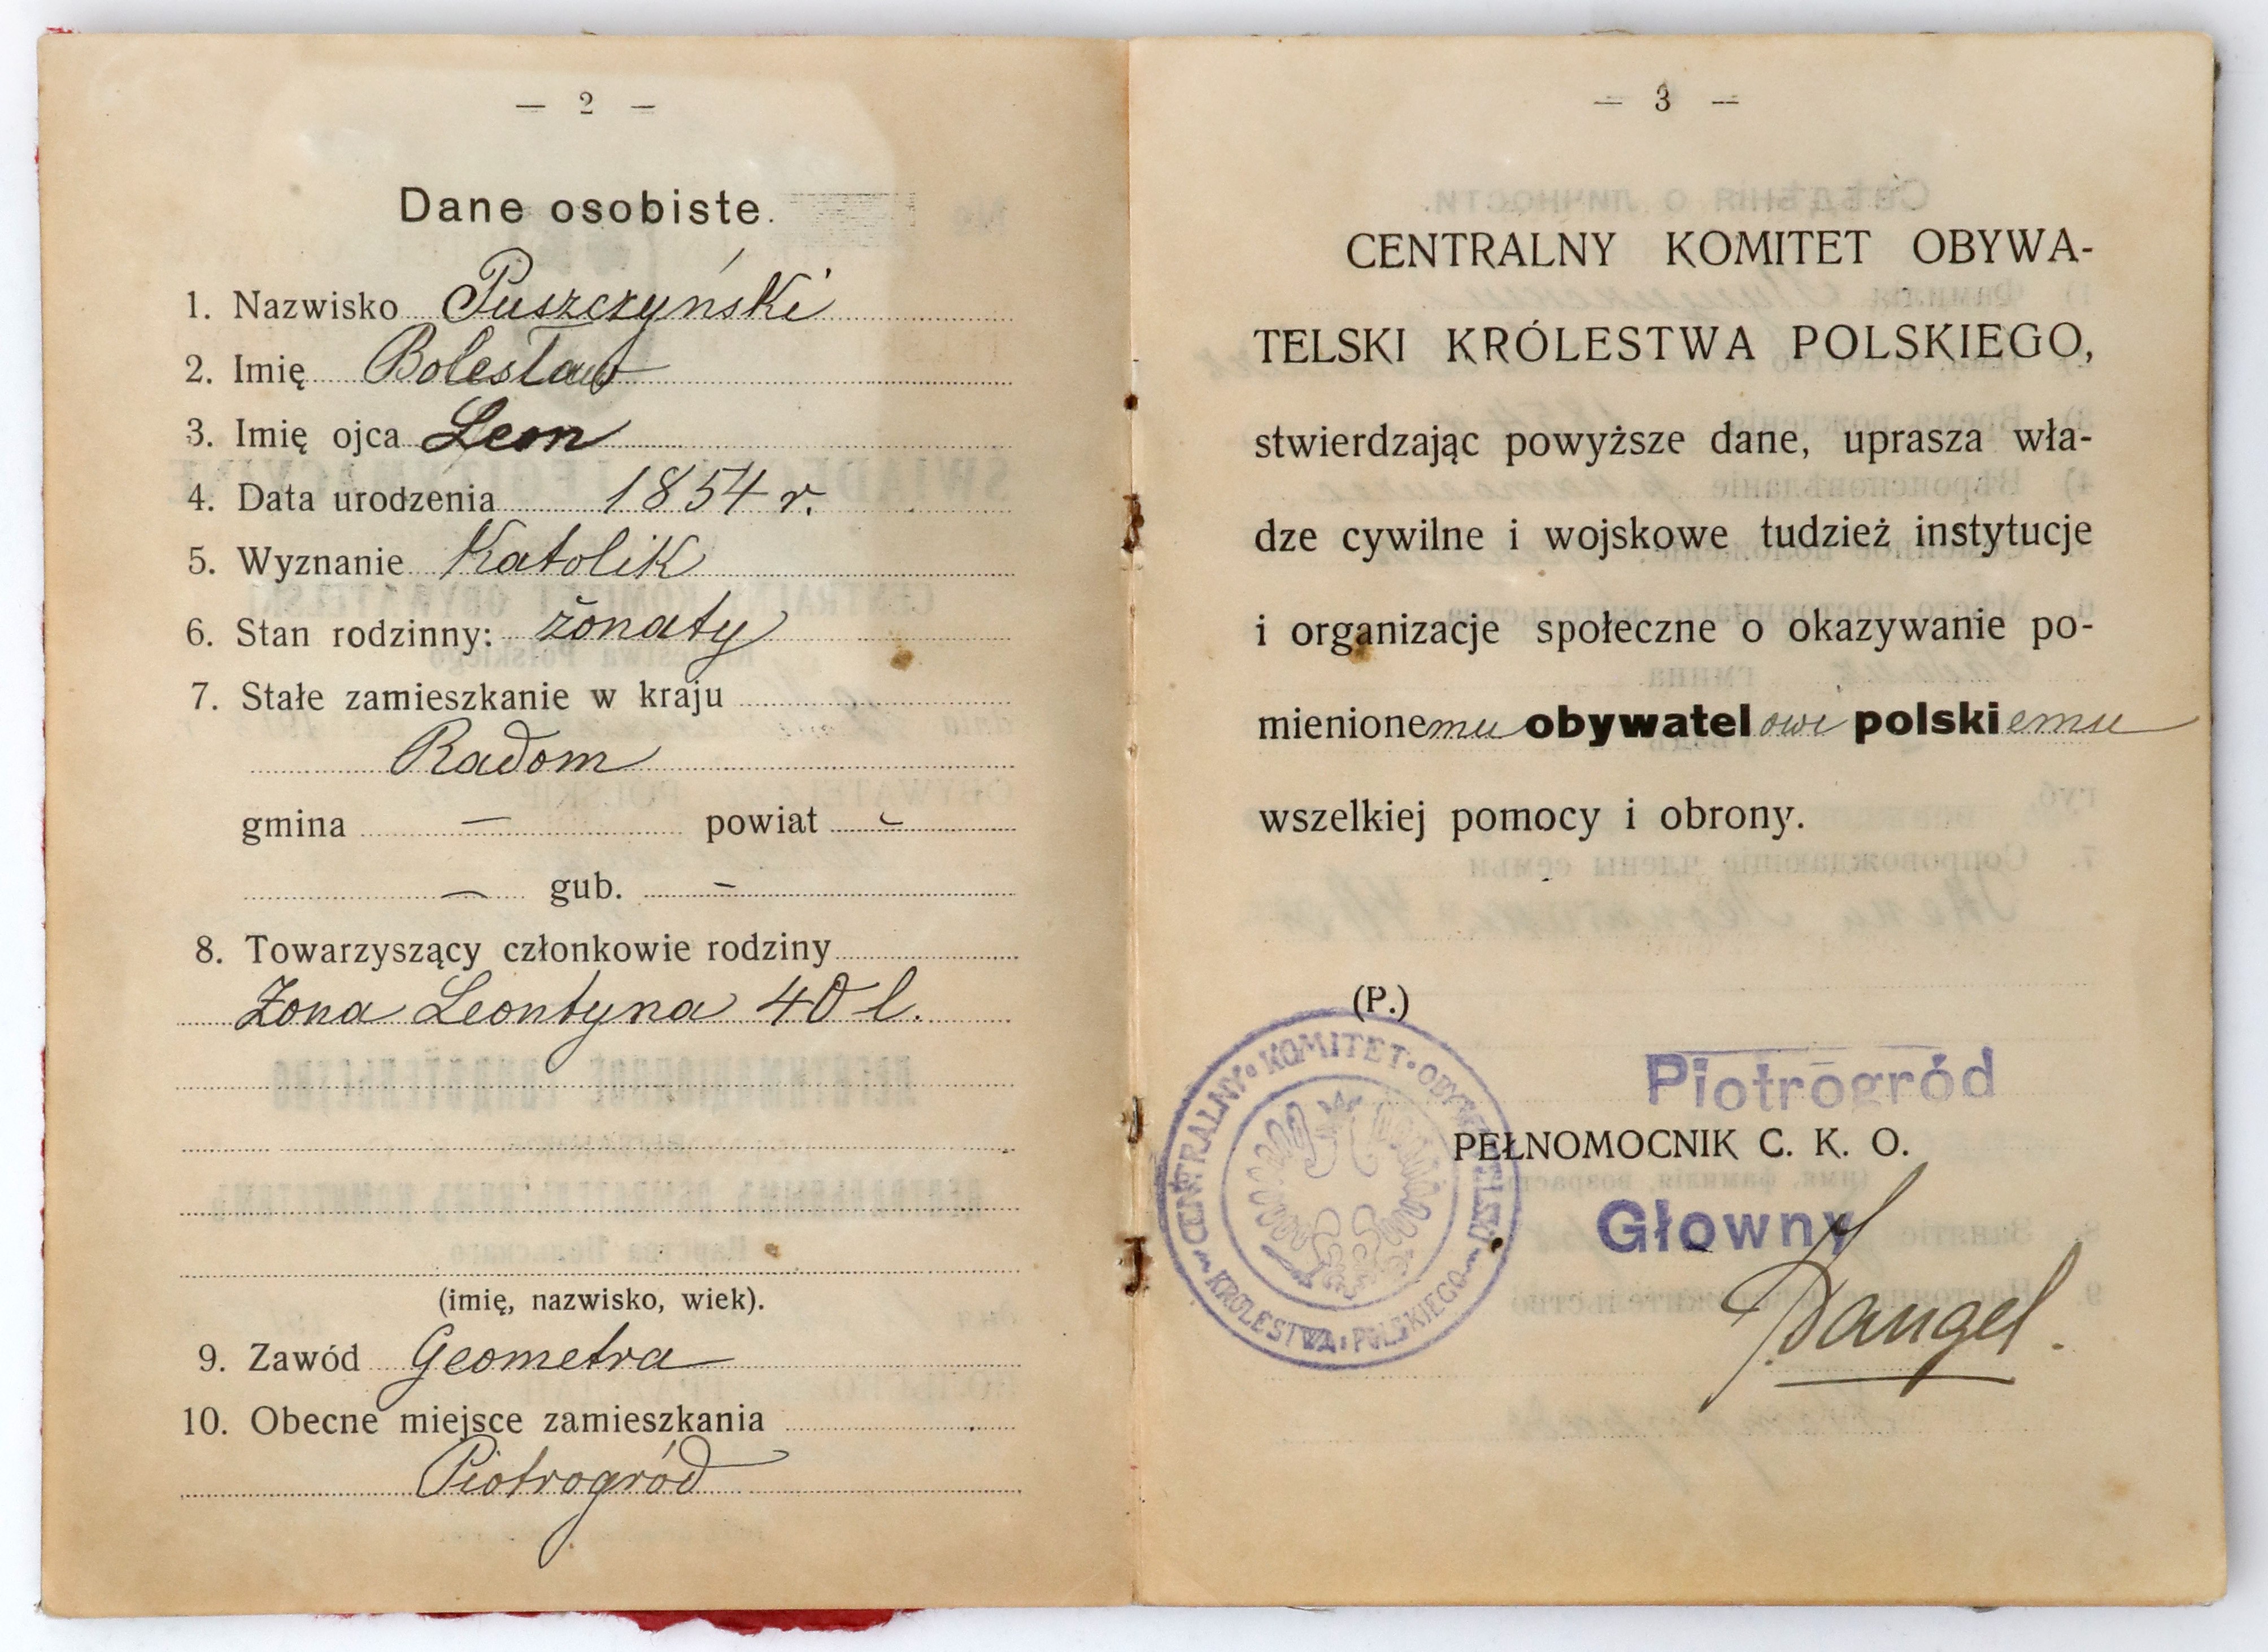 — 2 —
Dane osobiste.
1. Nazwisko Puszczyński
2. Imię Bolesław
3. Imię ojca Leon
4. Data urodzenia 1854 r.
5. Wyznanie Katolik
6. Stan rodzinny: żonaty
7. Stałe zamieszkanie w kraju
Radom
gmina — powiat —
— gub. —
8. Towarzyszący członkowie rodziny
Żona Leontyna 40 l.
(imię, nazwisko, wiek).
9. Zawód Geometra
10. Obecne miejsce zamieszkania
Piotrogród
— 3 —
CENTRALNY KOMITET OBYWA-
TELSKI KRÓLESTWA POLSKIEGO,
stwierdzając powyższe dane, uprasza wła-
dze cywilne i wojskowe tudzież instytucje
i organizacje społeczne o okazywanie po-
mienionemu obywatelowi polskiemu
wszelkiej pomocy i obrony.
(P.)
CENTRALNY • KOMITET • OBYWATELSKI
KRÓLESTWA • POLSKIEGO
Piotrogród
PEŁNOMOCNIK C. K. O.
Głowny
Dangel.